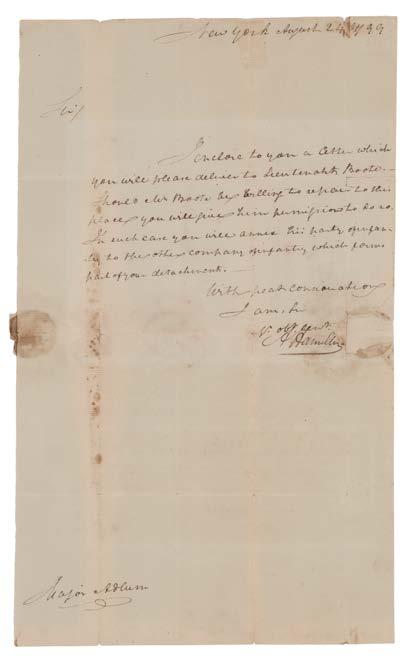 New York August 24th 1799
Sir
I enclose to you a letter which
you will please deliver to Lieutenant Boote.
Should Mr Boote be willing to repair to this
place you will give him permission to do so.
In such case you will annex his party of infan-
try to the other company of infantry which forms
part of your detachment. —
With great consideration
I am, Sir
Yr obt servt
A Hamilton
Major Adlum